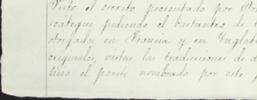 Visto el escrito presentado por Don
pidiendo el bastanteo de
otorgados en Francia y en Inglate
originales, vistas las traducciones de d
tuvo el perito nombrado por este